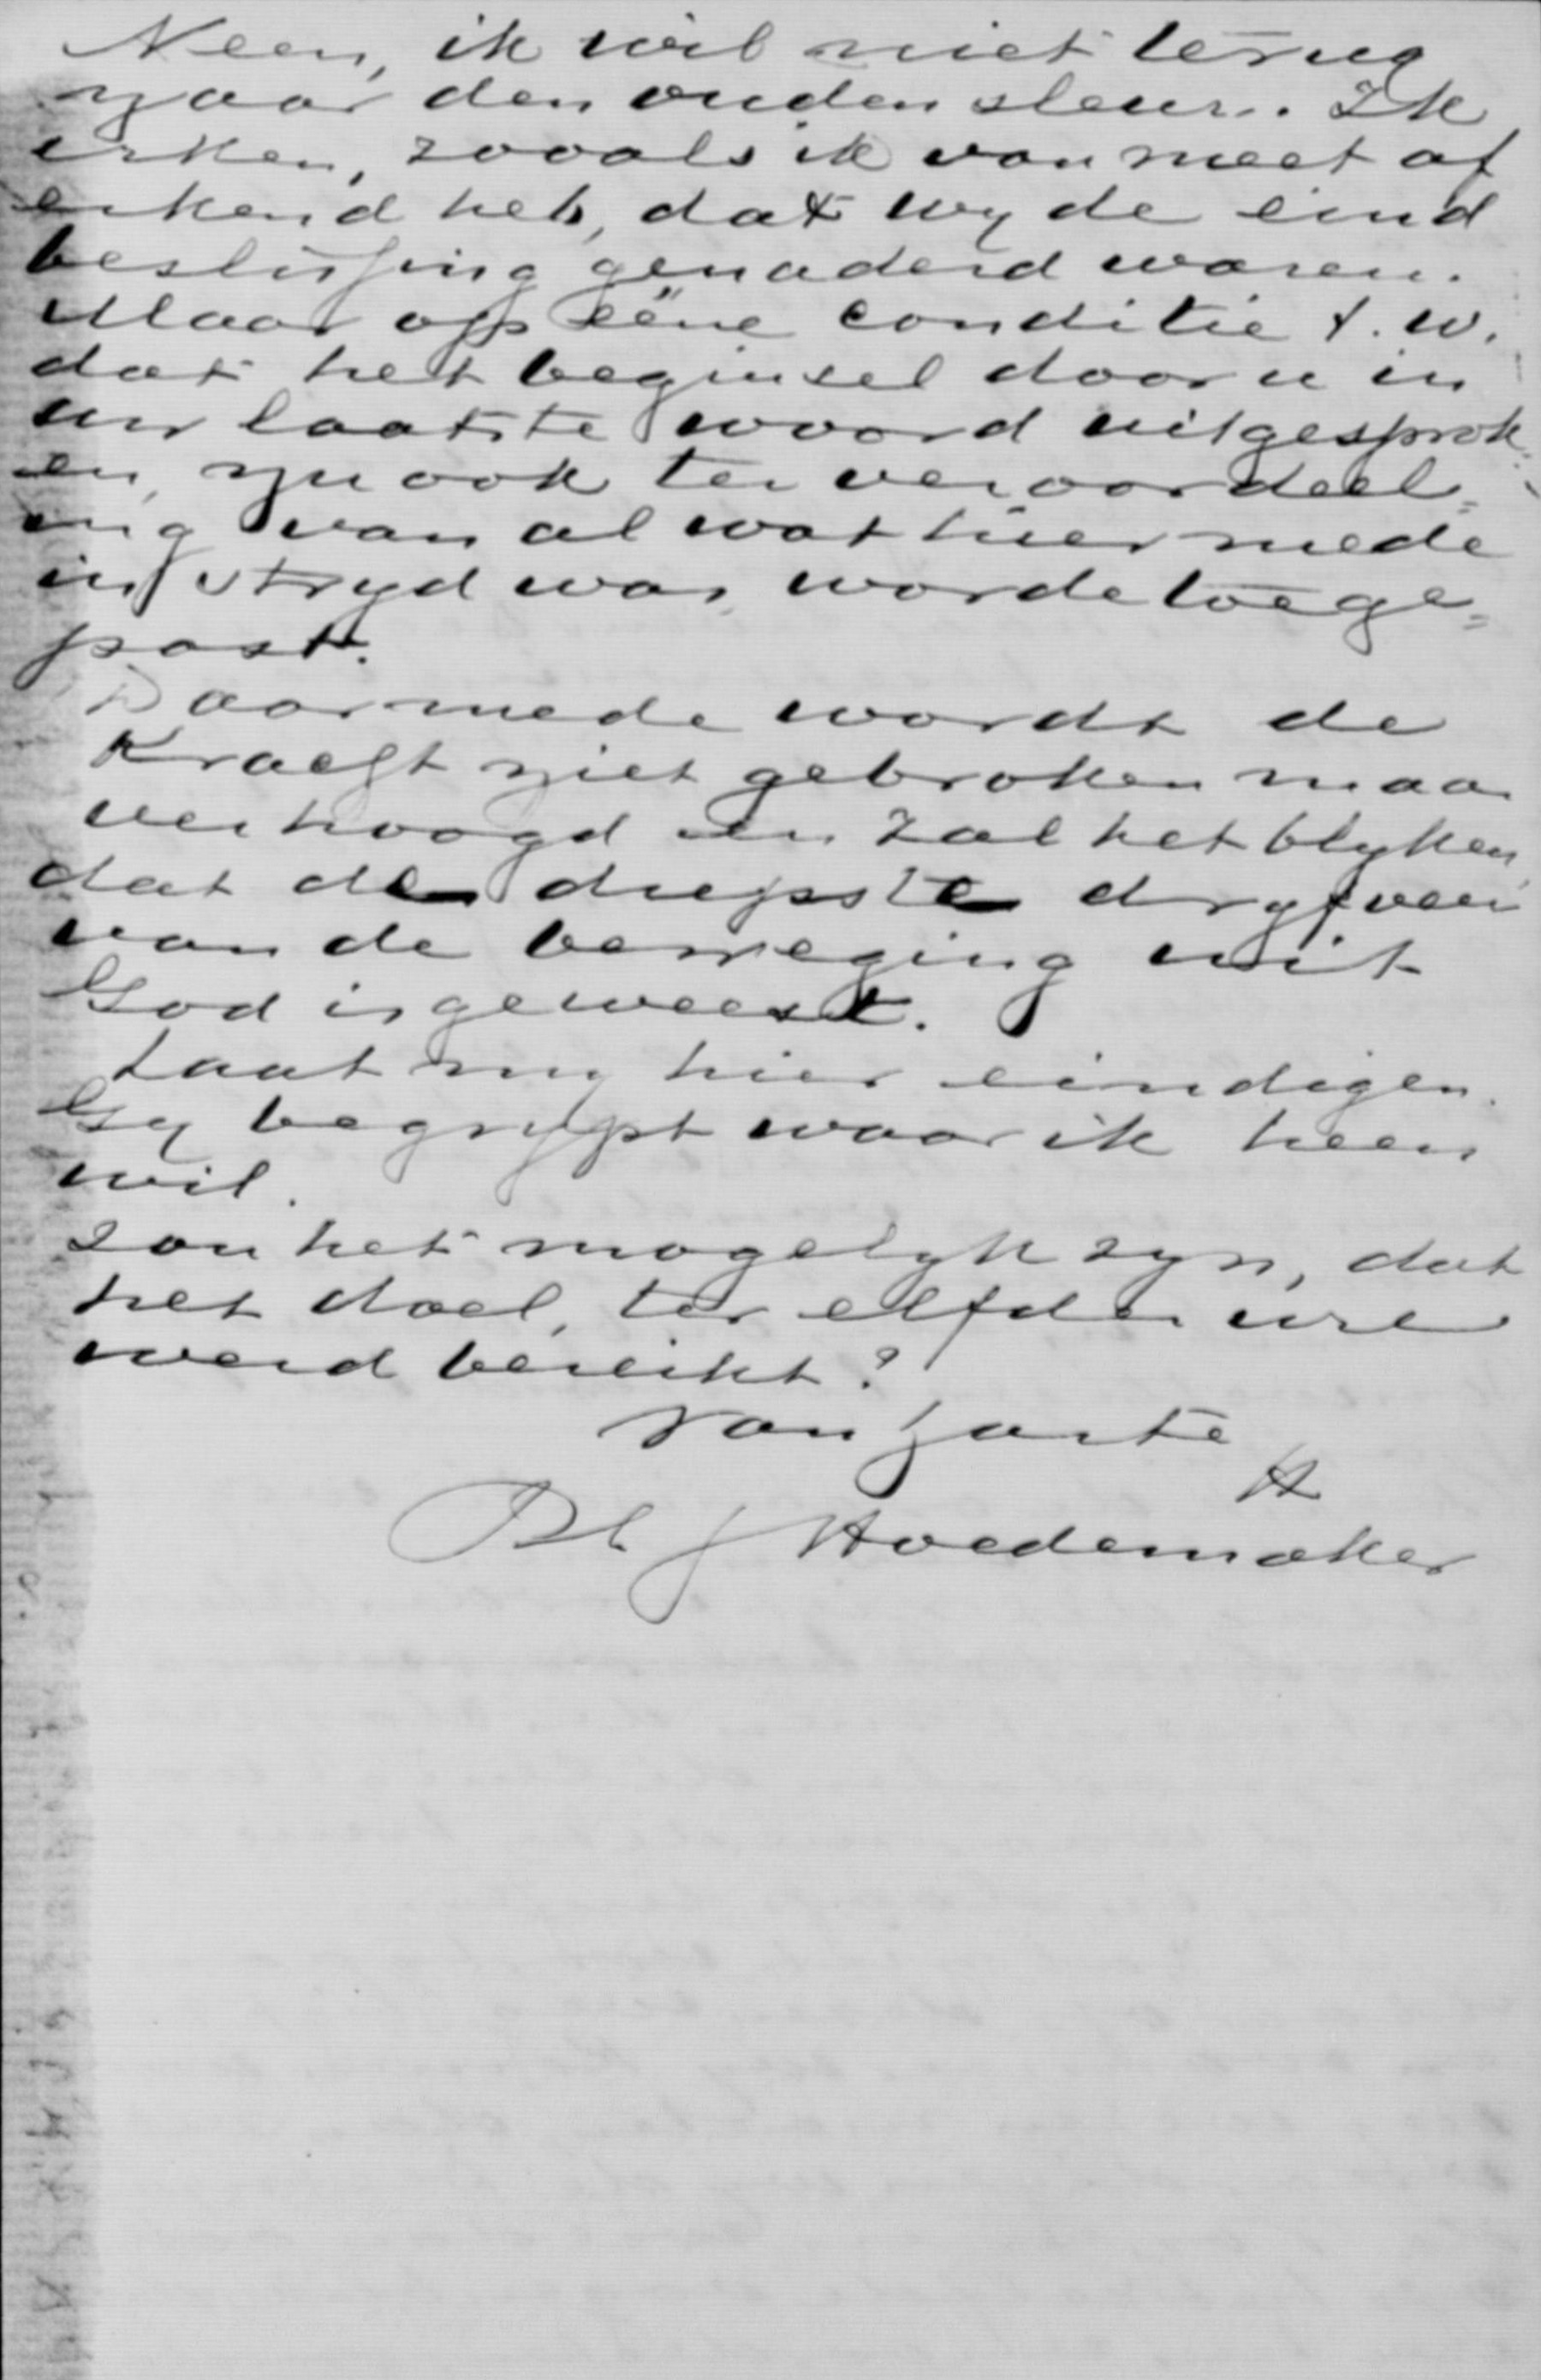 Neen, ik wil niet terug
naar den ouden sleur. Ik
erken, zooals ik van meet af
erkend heb, dat wy de eind
beslissing genaderd waren.
Maar op ééne conditie t.w.
dat het beginsel door u in
uw laatste woord uitgesprok=
en, nu ook ter veroordeel=
ing van al wat hiermede
in stryd was, worde toege=
past.
Daarmede wordt de
Kracht niet gebroken maar
verhoogd en zal het blyken,
dat de diepste dryfveer
van de beweging uit
God is geweest.
Laat my hier eindigen.
Gy begrypt waar ik heen
wil.
Zou het mogelyk zyn, dat
het doel, ter elfder ure
werd bereikt?
Van harte
Ph J Hoedemaker